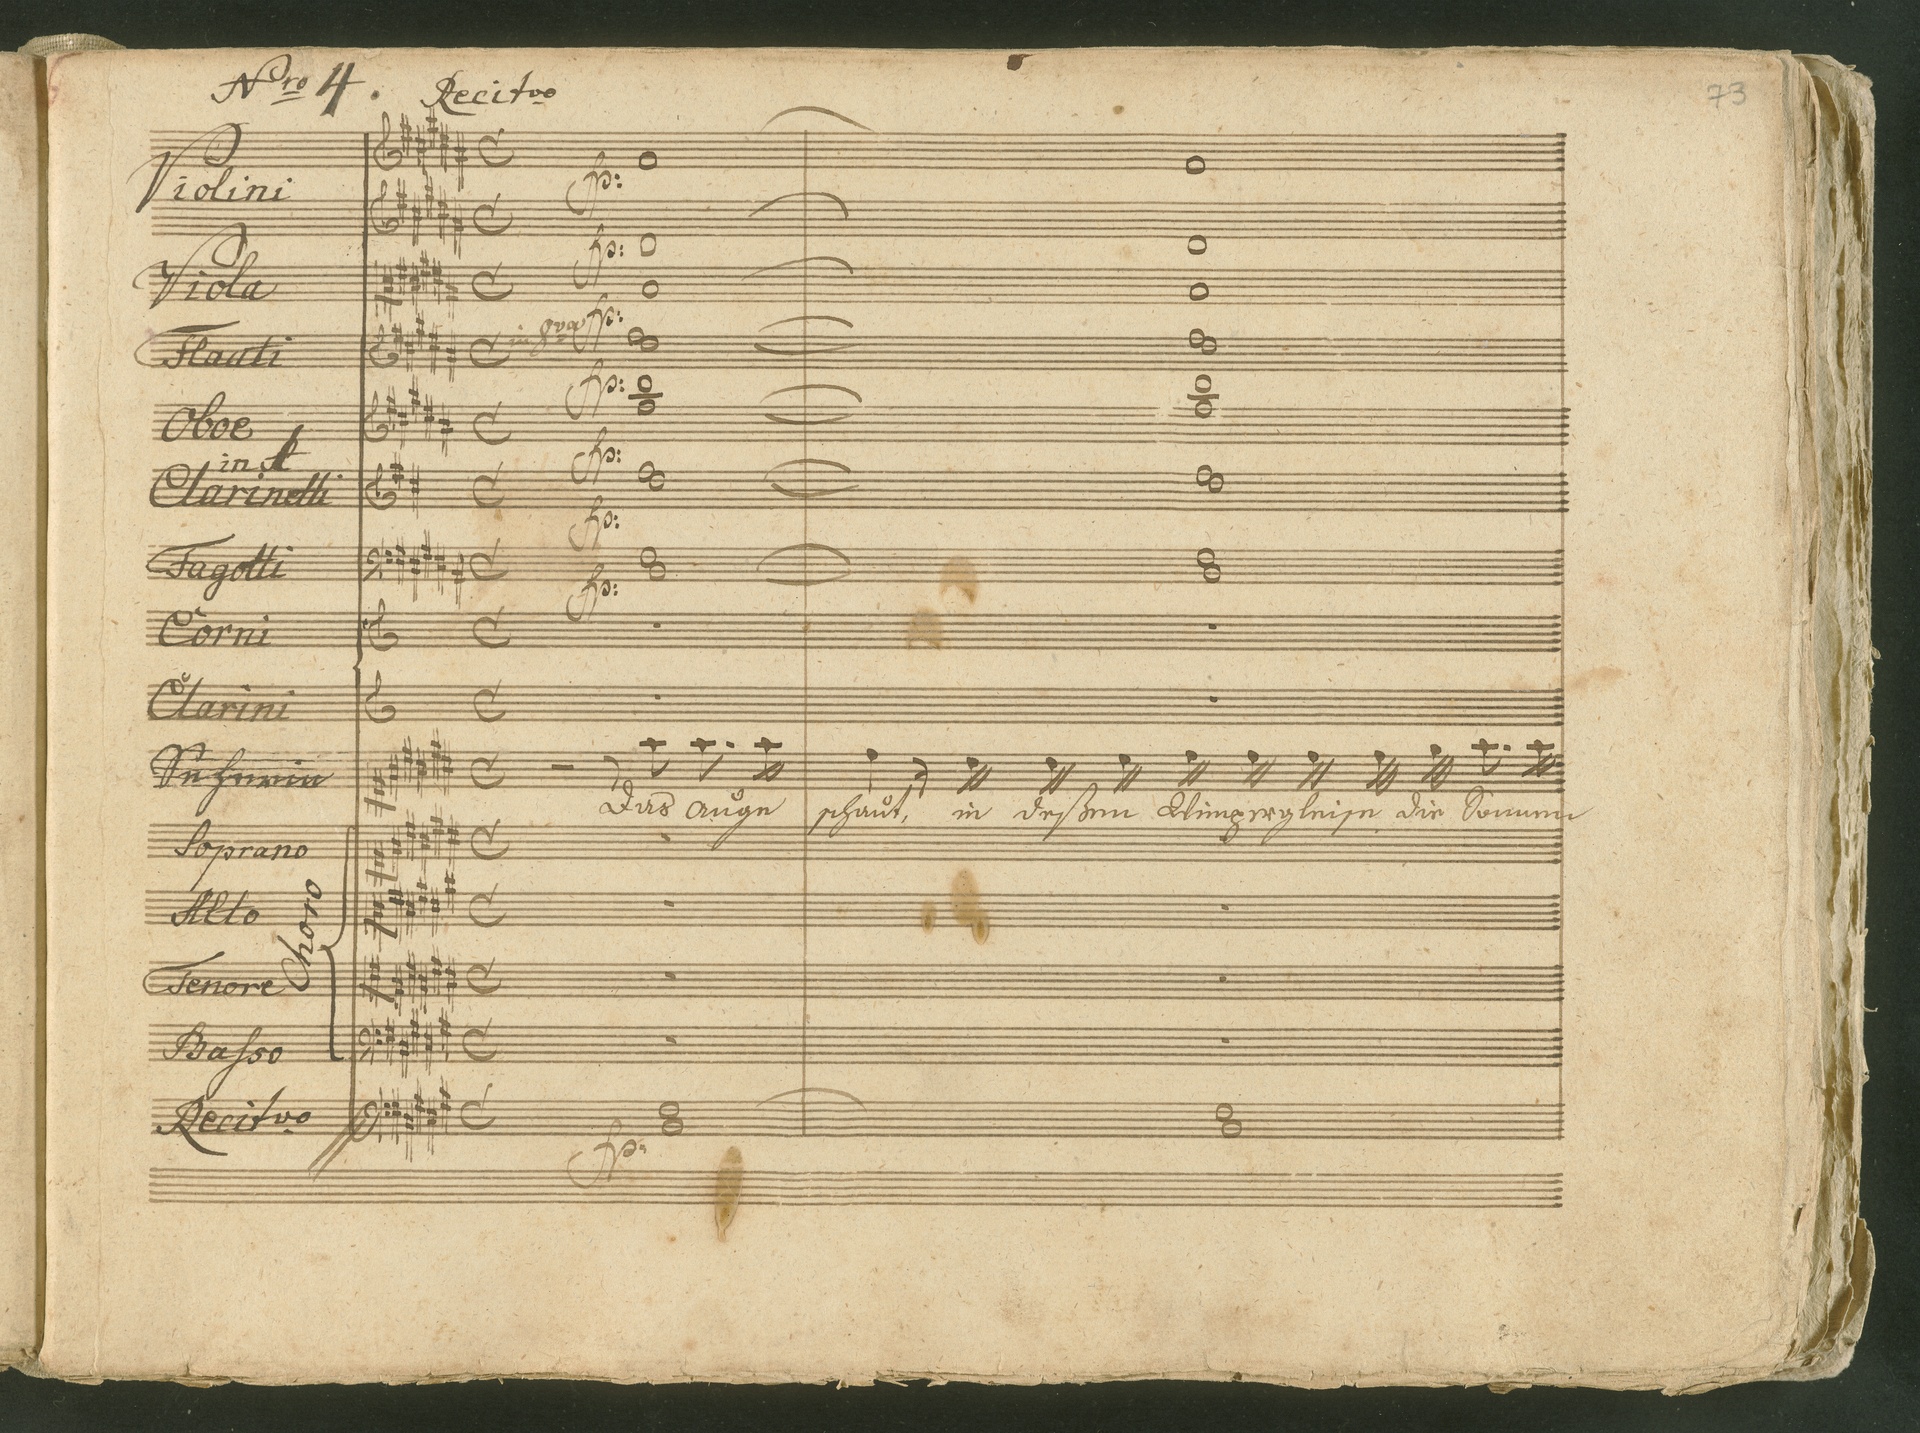 Nro 4. Recitvo
73
Violini
fp:
Viola
fp:
fp:
Flauti
in 8va
fp:
Oboe
fp:
in A
Clarinetti
fp:
Fagotti
fp:
Corni
Clarini
Das auge schaut, in deßen Wimpergleise die Sonnen
Soprano
Alto
Choro
Tenore
Basso
Recitvo
fp: